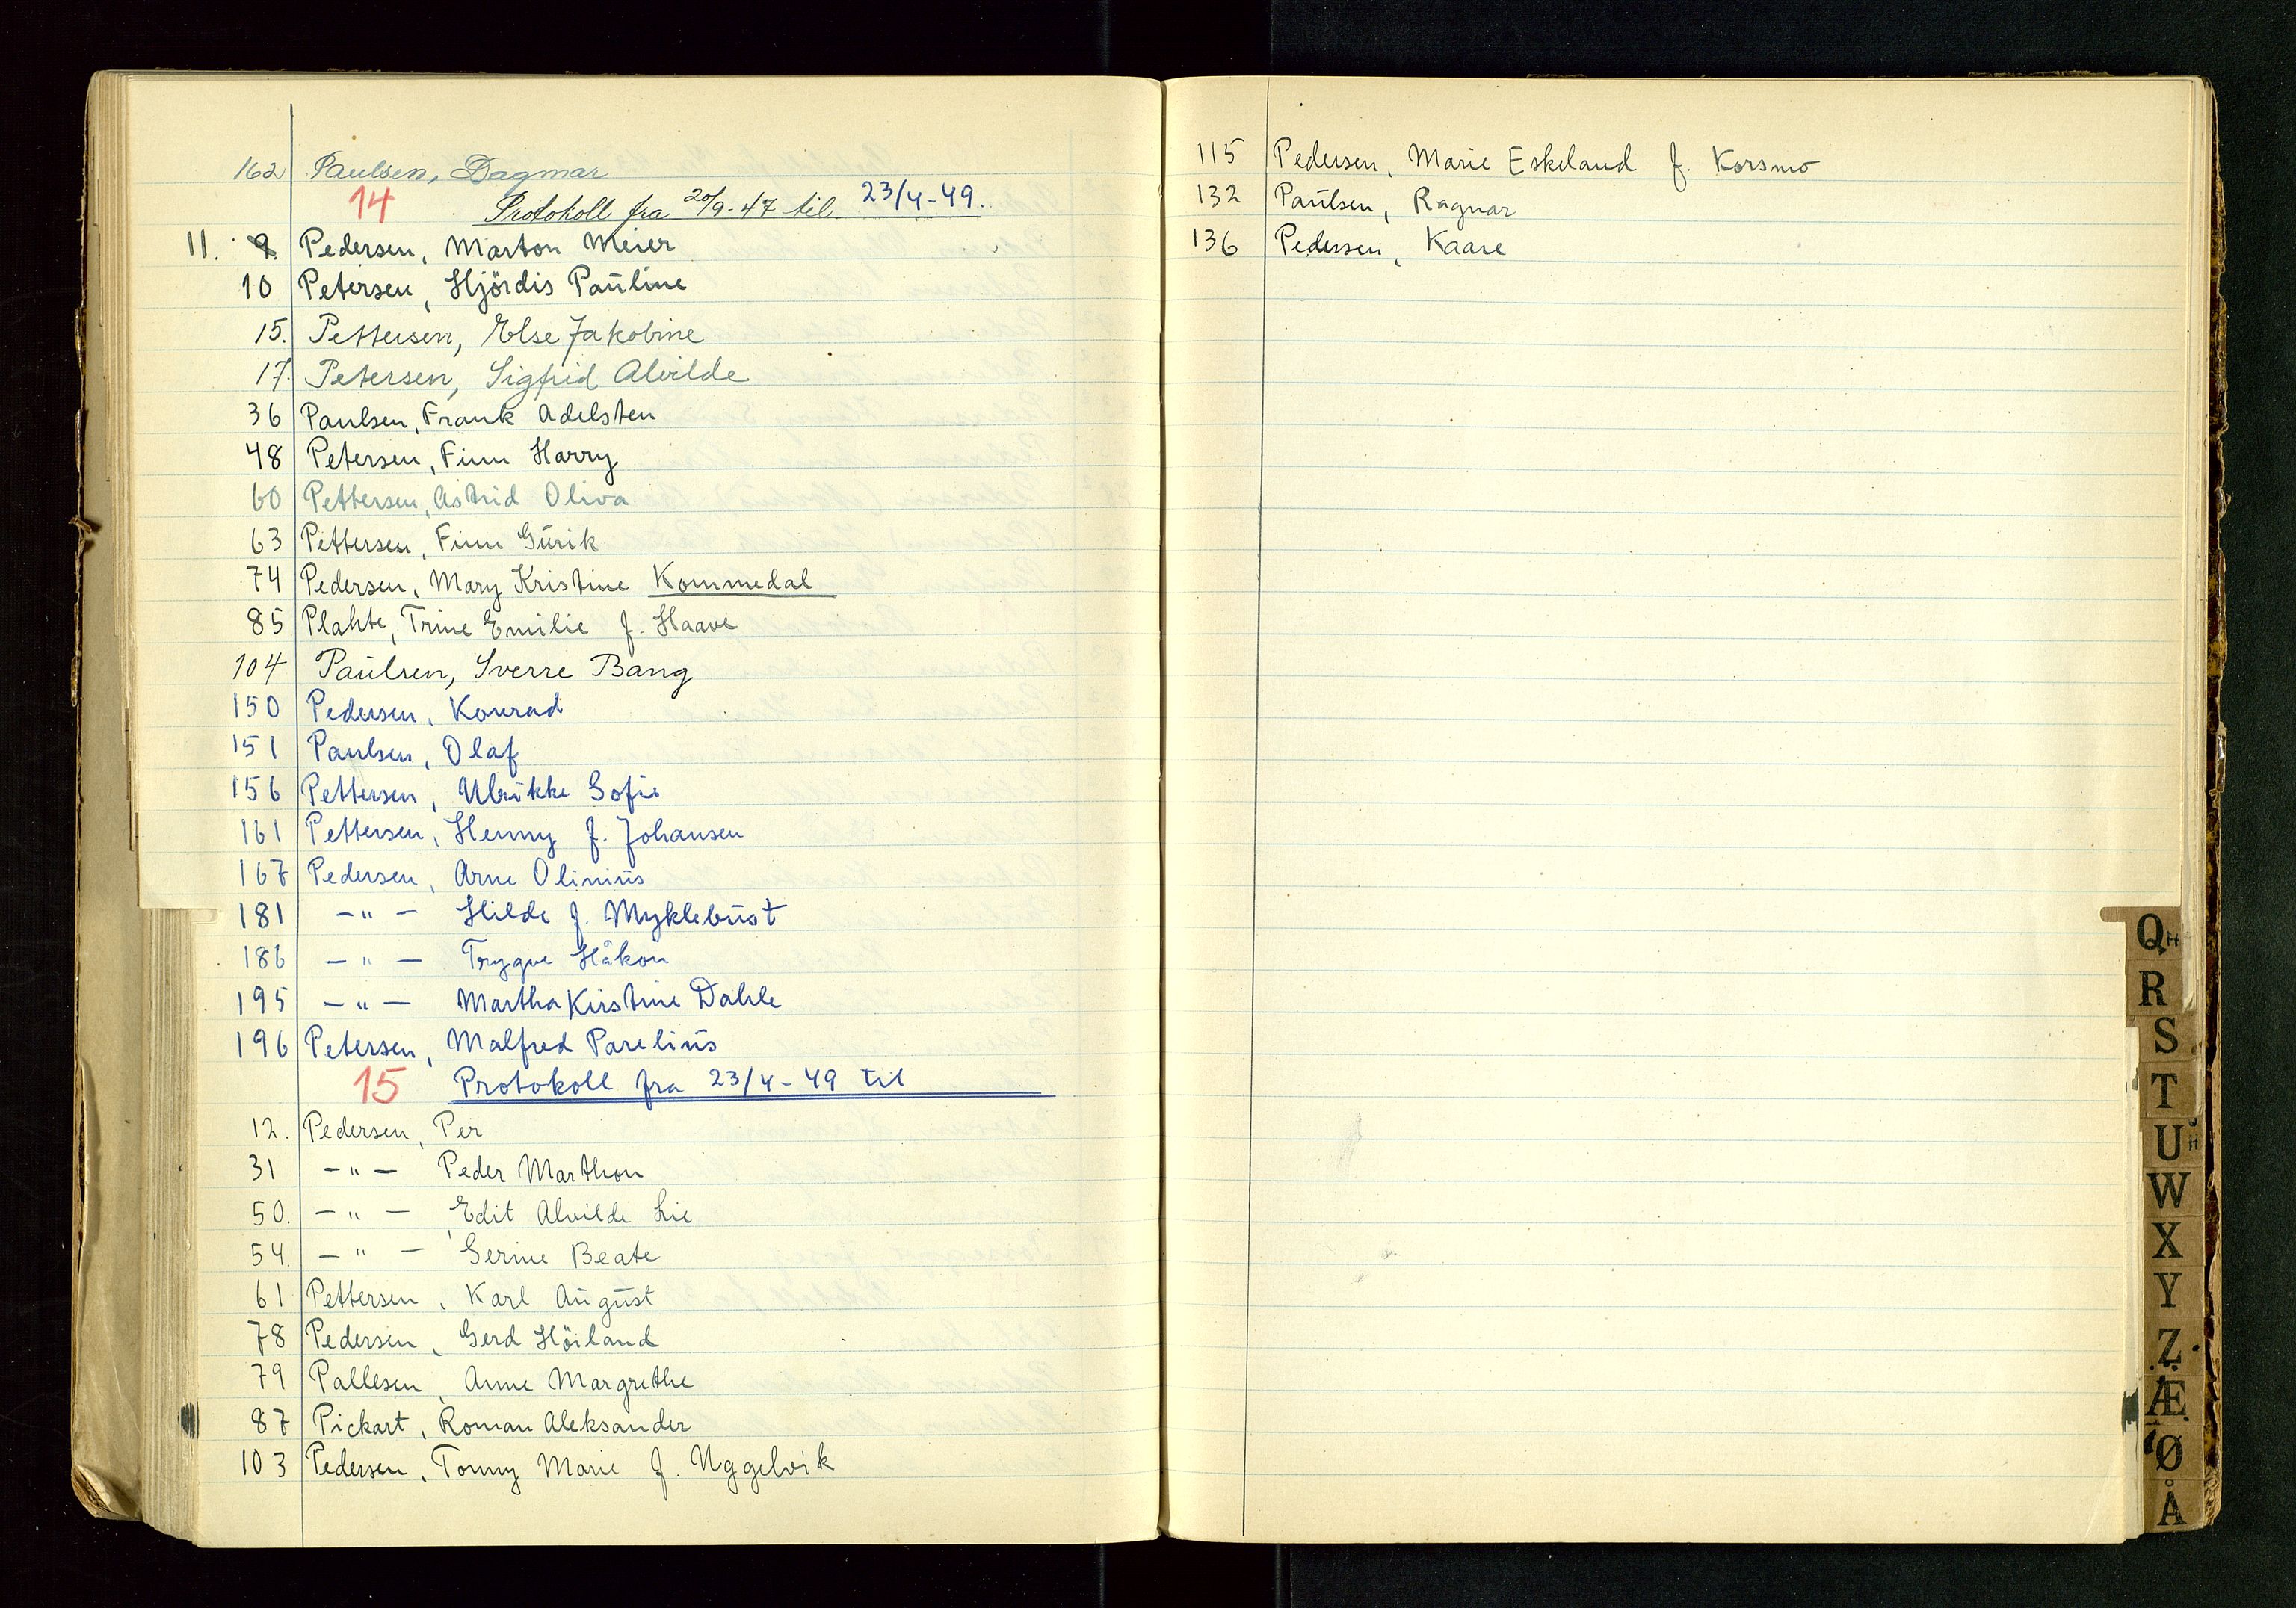 162 Paulsen, Dagmar
14 Protokoll fra 20/9-47 til 23/4-49.
11. 9. Pedersen, Marton Meier
10 Petersen, Hjördis Pauline
15. Pettersen, Else Jakobine
17. Petersen, Sigfrid Alvilde
36 Paulsen, Frank Adelsten
48 Petersen, Finn Harry
60 Pettersen, Astrid Oliva
63 Pettersen, Finn Gürik
74 Pedersen, Mary Kristine Kommedal
85 Plahte, Trine Emilie f. Haave
104 Paulsen, Sverre Bang
150 Pedersen, Konrad
151 Paulsen, Olaf
156 Pettersen, Ulrikke Sofie
161 Pettersen, Henny f. Johansen
167 Pedersen, Arne Olinius
181 -"- Hilde f. Myklebust
186 -"- Trygve Håkon
195 -"- Martha Kirstine Dahle
196 Petersen, Malfred Parelius
15 Protokoll fra 23/4-49 til
12. Pedersen, Per
31 -"- Peder Marthon
50. -"- Edit Alvilde Lie
54. -"- Serine Beate
61 Pettersen, Karl August
78 Pedersen, Gerd Höiland
79 Pallesen, Anne Margrethe
87 Pickart, Roman Aleksander
103 Pedersen, Tonny Marie f. Uggelvik
115 Pedersen, Marie Eskeland f. Korsmo
132 Paulsen, Ragnar
136 Pedersen, Kaare
Q
R
S
T
U
W
X
Y
Z
Æ
Ø
Å